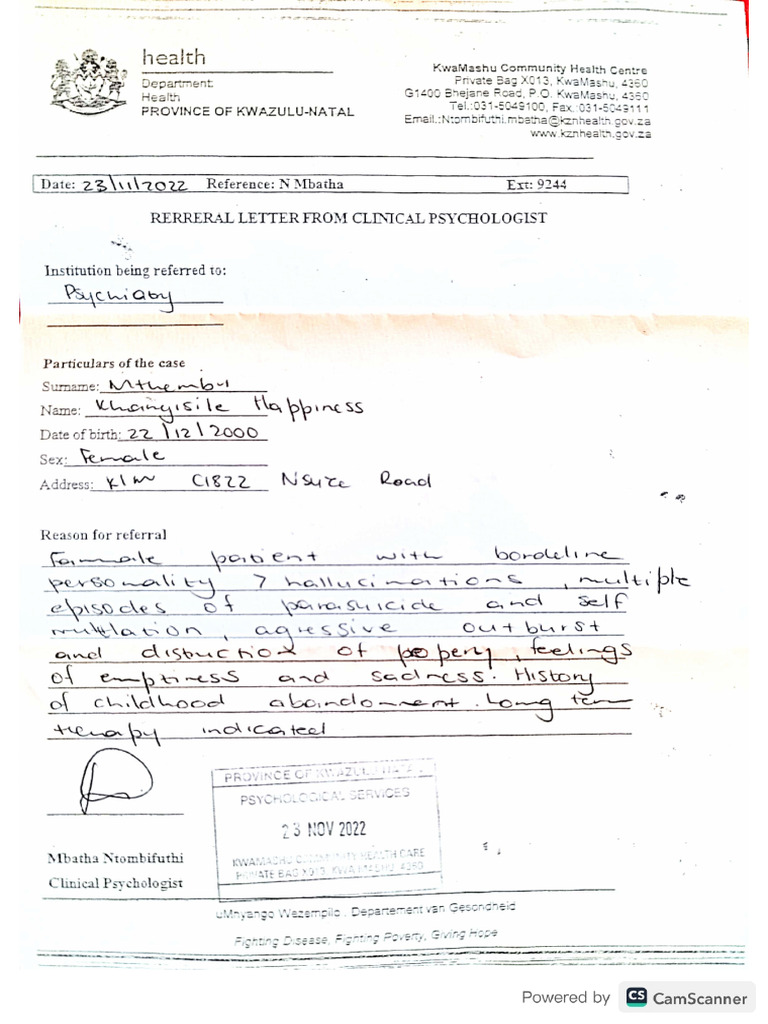 health
Department:
Health
PROVINCE OF KWAZULU-NATAL
KwaMashu Community Health Centre
Private Bag X013, KwaMashu, 4360
G1400 Bhejane Road, P.O. KwaMashu, 4360
Tel.:031-5049100, Fax.:031-5049111
Email.:Ntombifuthi.mbatha@kznhealth.gov.za
www.kznhealth.gov.za
Date: 23/11/2022 Reference: N Mbatha Ext: 9244
RERRERAL LETTER FROM CLINICAL PSYCHOLOGIST
Institution being referred to:
Particulars of the case
Surname: Mthembu
Name: Khanyisile Happiness
Date of birth: 22/12/2000
Sex: Female
Address: C1822 Road
Reason for referral
patient with bordeline
personality ? hallucinations, multiple
episodes of parasuicide and self
agressive outburst
and of feelings
of emptiness and sadness. History
of childhood abandonment. Long term
therapy indicated
PROVINCE OF KWAZULU NATAL
PSYCHOLOGICAL SERVICES
23 NOV 2022
KWAMASHU COMMUNITY HEALTH CARE
PRIVATE BAG X013, KWA MASHU, 4360
Mbatha Ntombifuthi
Clinical Psychologist
uMnyango Wezempilo . Departement van Gesondheid
Fighting Disease, Fighting Poverty, Giving Hope
Powered by CS CamScanner